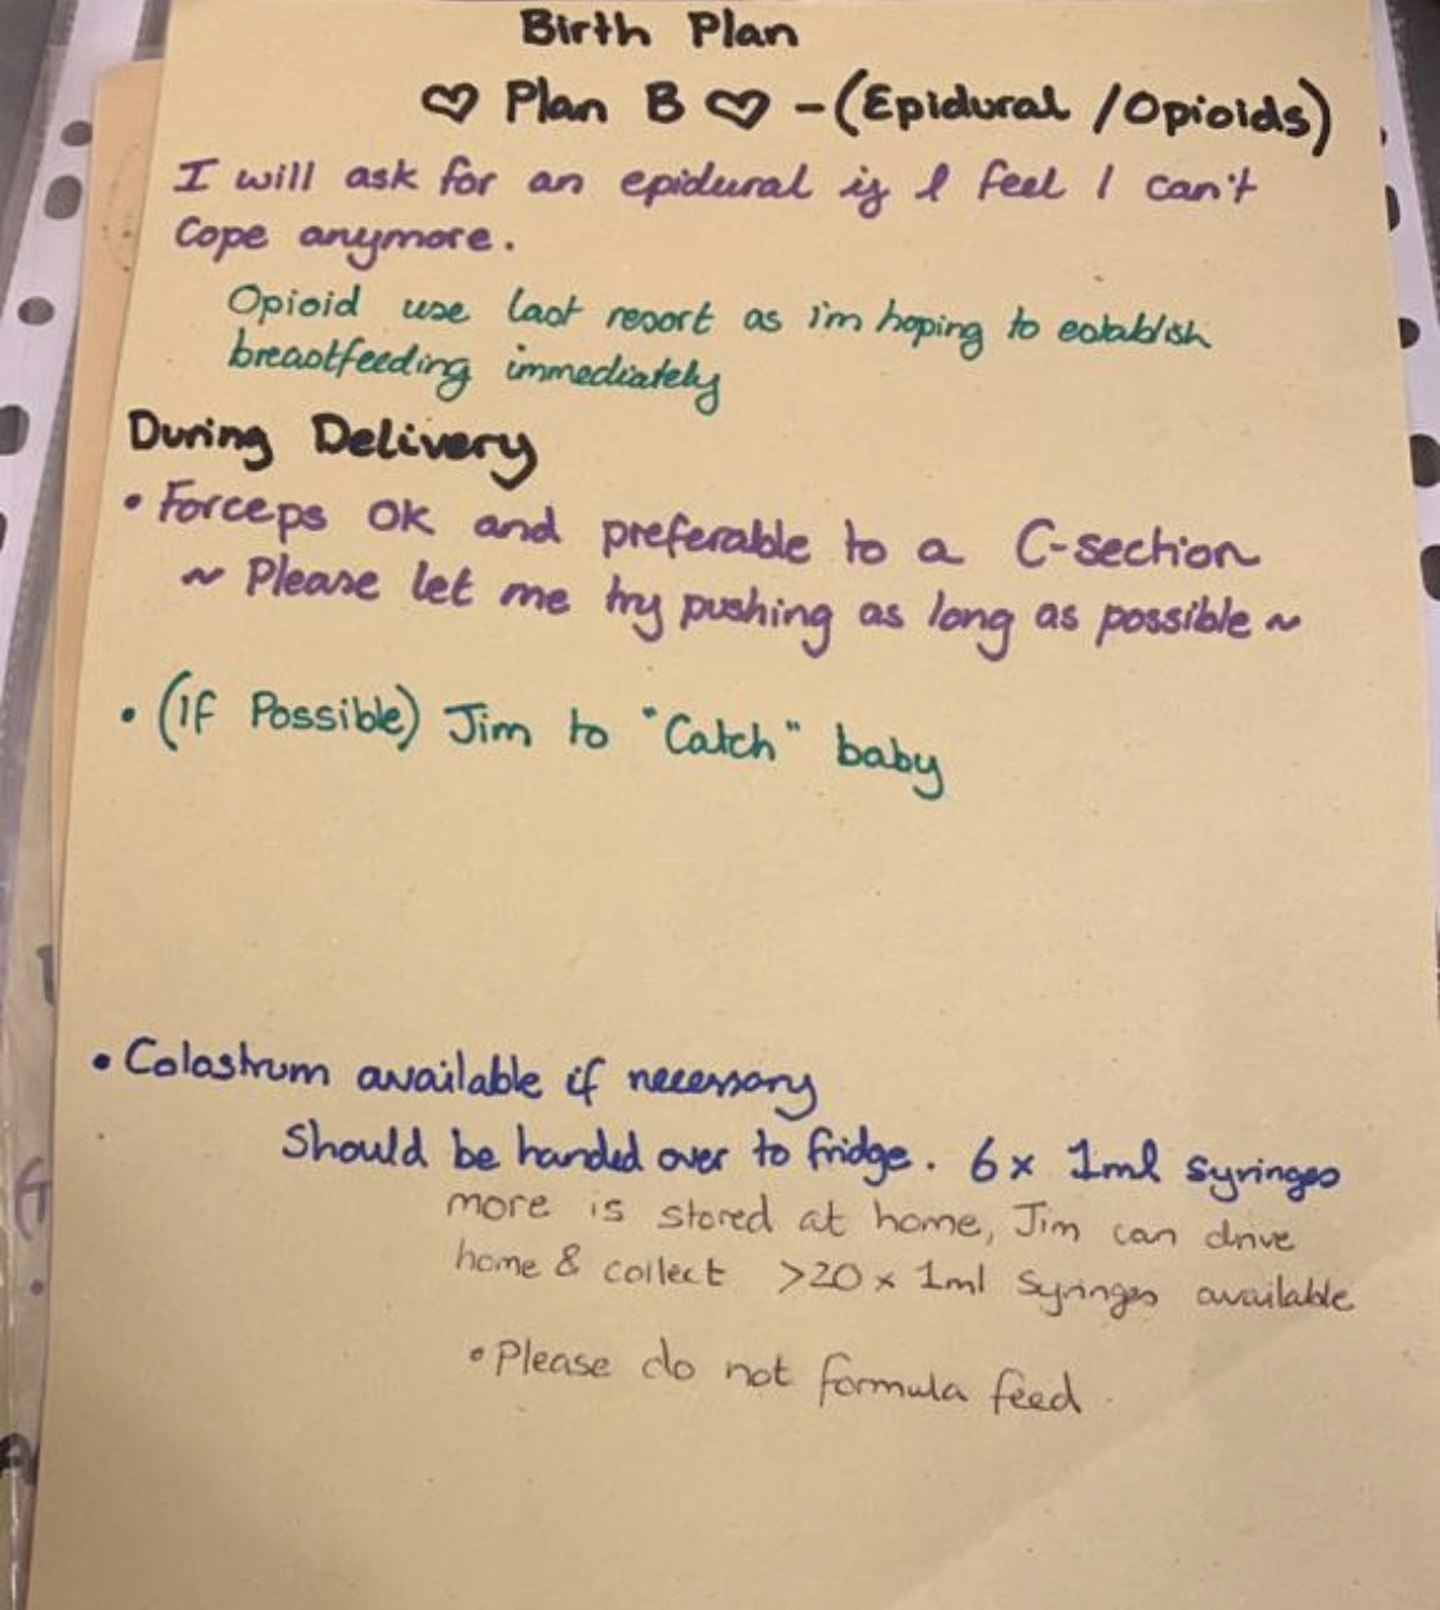 Birth Plan
♡ Plan B ♡ - (Epidural / Opioids)
I will ask for an epidural if I feel I can't
Cope anymore.
Opioid use last resort as i'm hoping to establish
breastfeeding immediately
During Delivery
• Forceps OK and preferable to a C-section
~ Please let me try pushing as long as possible ~
• (If Possible) Jim to "Catch" baby
• Colostrum available if necessary
Should be handed over to fridge. 6x 1ml syringes
more is stored at home, Jim can drive
home & collect >20 x 1ml Syringes available
• Please do not formula feed.